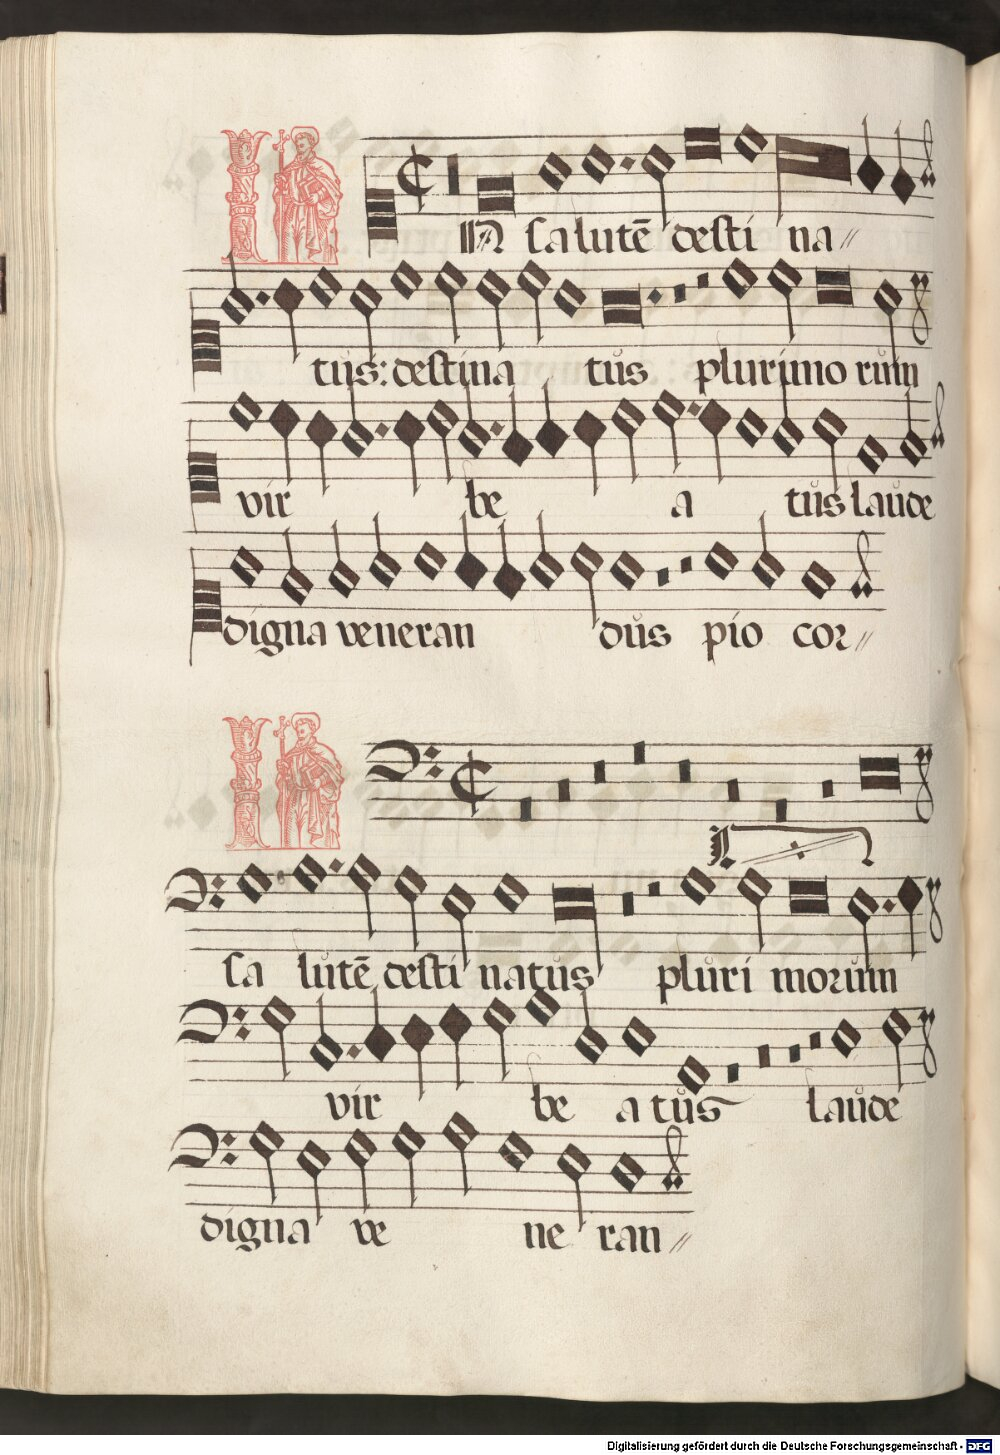 IN salutē desti na //
tus: destina tus plurimo rum
vir be a tus laude
digna veneran dus pio cor //
IN
sa lutē desti natus pluri morum
vir be a tus laude
digna ve ne ran //
Digitalisierung gefördert durch die Deutsche Forschungsgemeinschaft - DFG